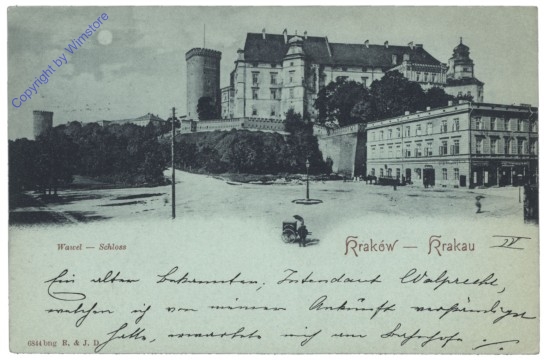 Copyright by Winstore
Wawel — Schloss
Kraków — Krakau
IV
Ein alten Bekannten, Intendant Walprecht,
welchen ich von meinen Ankunft verständigt
hatte, erwartete mich am Bahnhofe.
6844 btng R. & J. D.